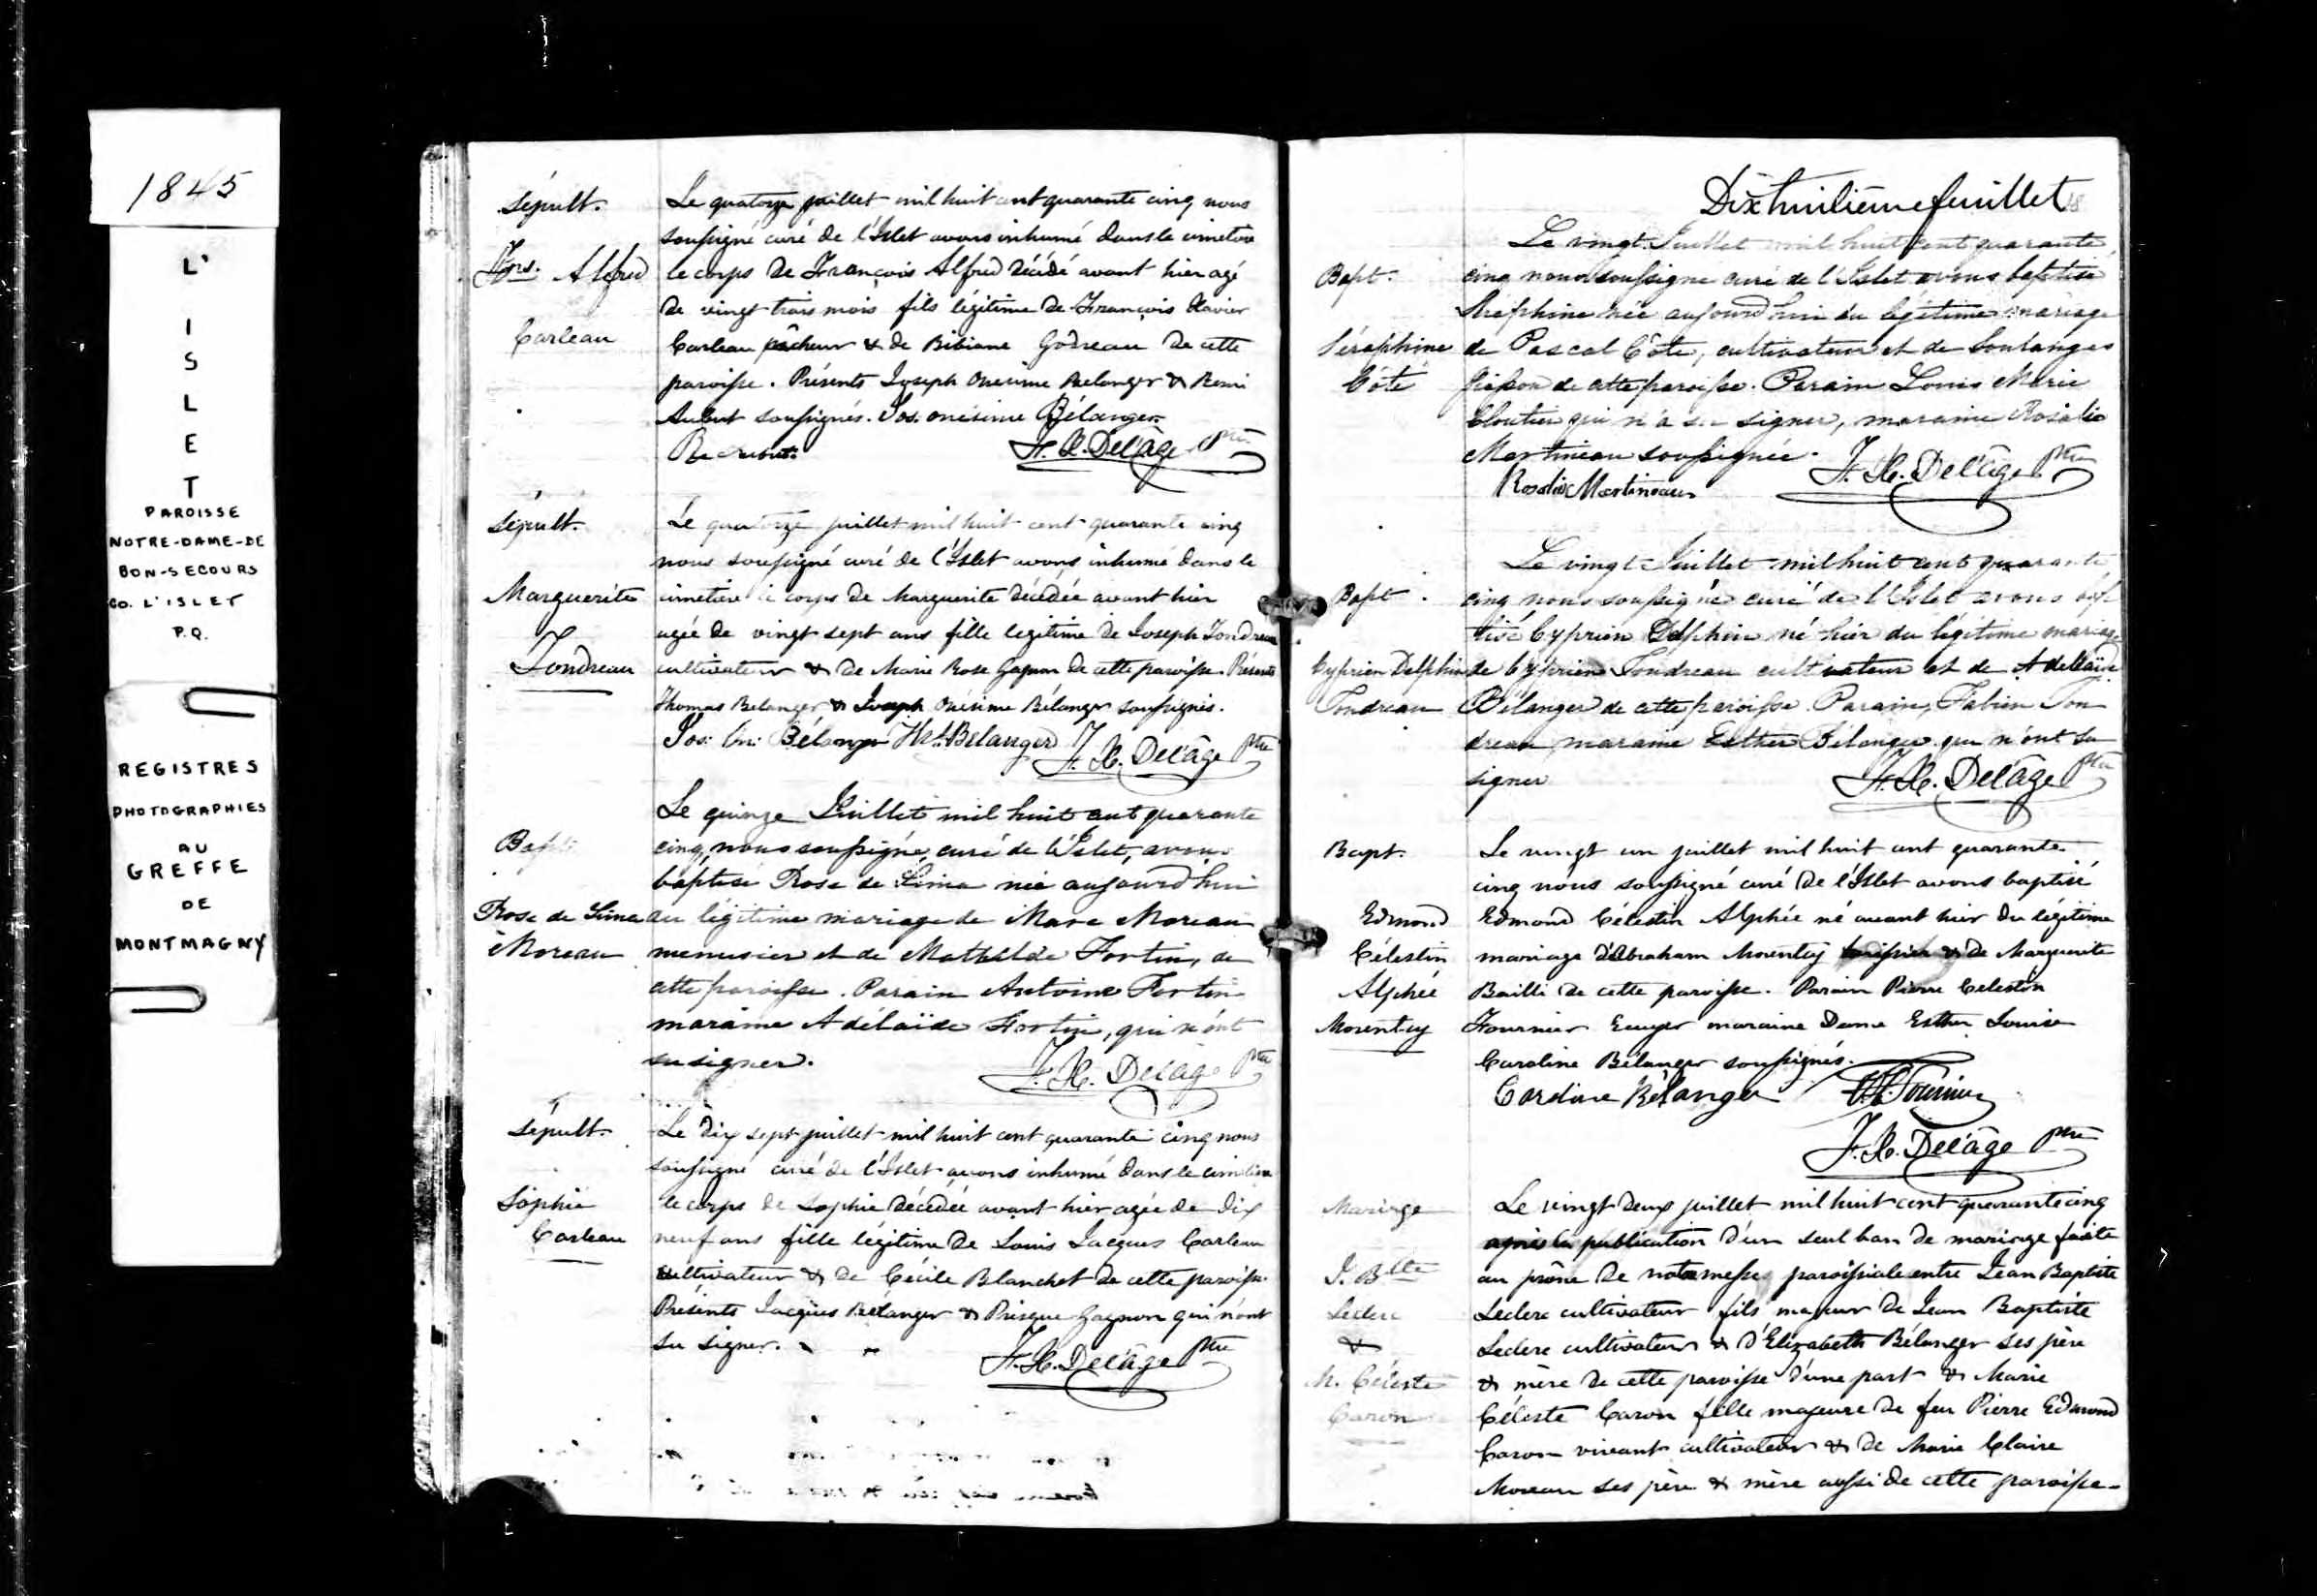 1845
L'
I
S
L
E
T
PAROISSE
NOTRE-DAME-DE
BON-SECOURS
CO. L'ISLET
P.Q.
REGISTRES
PHOTOGRAPHIES
AU
GREFFE
DE
MONTMAGNY
Sépult.
Frs. Alfred
Carleau
Le quatorze juillet mil huit cent quarante cinq nous
soussigné curé de l'Islet avons inhumé dans le cimetière
le corps de François Alfred décédé avant hier agé
de vingt trois mois fils légitime de François Xavier
Carleau pêcheur & de Bibiane Godreau de cette
paroisse. Présents Joseph Onesime Belanger & Remi
Aubut soussignés. Jos. onésime Bélanger
F. X. Delâge Ptre
Sépult.
Marguerite
Tondreau
Le quatorze juillet mil huit cent quarante cinq
nous soussigné curé de l'Islet avons inhumé dans le
cimetière le corps de Marguerite décédée avant hier
agée de vingt sept ans fille legitime de Joseph Tondreau
cultivateur & de Marie Rose Gagnon de cette paroisse. Présents
Thomas Belanger & Joseph Onésime Bélanger soussignés.
Jos: On: Bélanger Ths. Bélanger F. X. Delâge Ptre
Bapt.
Rose de Lima
Moreau
Le quinze Juillet mil huit cent quarante
cinq, nous soussigné, curé de l'Islet, avons
baptisé Rose de Lima née aujourd'hui
du légitime mariage de Marc Moreau
menusier et de Mathilde Fortin, de
cette paroisse. Parain Antoine Fortin
maraine Adélaïde Fortin, qui n'ont
su signer.
F. X. Delâge Ptre
Sépult.
Sophie
Carleau
Le dix sept juillet mil huit cent quarante cinq nous
soussigné curé de l'Islet avons inhumé dans le cimetière
le corps de Sophie décédée avant hier agée de dix
neuf ans fille légitime de Louis Jacques Carleau
cultivateur & de Cécile Blanchet de cette paroisse.
Présents Jacques Bélanger & Prisque Gagnon qui n'ont
su signer.
F. X. Delâge Ptre
Dix huitième feuillet
18
Bapt.
Séraphine
Côté
Le vingt Juillet mil huit cent quarante
cinq nous soussigné curé de l'Islet avons baptisé
Séraphine née aujourd'hui du légitime mariage
de Pascal Côté, cultivateur et de Soulanges
de cette paroisse. Parain Louis Marie
Cloutier qui n'a su signer, maraine Rosalie
Martineau soussignée.
Rosalie Martineau
F. X. Delâge Ptre
Bapt.
Cyprien Delphin
Tondreau
Le vingt Juillet mil huit cent quarante
cinq nous soussigné curé de l'Islet avons bap
tisé Cyprien Delphin né hier du légitime mariage
de Cyprien Tondreau cultivateur et de Adellaïde
Bélanger de cette paroisse. Parain, Fabien Ton
dreau maraine Esther Bélanger qui n'ont su
signer
F. X. Delâge Ptre
Bapt.
Edmond
Célestin
Alphée
Morency
Le vingt un juillet mil huit cent quarante
cinq nous soussigné curé de l'Islet avons baptisé
Edmond Célestin Alphée né avant hier du légitime
mariage d'Abraham Morency & de Marguerite
Bailli de cette paroisse. Parain Pierre Celestin
Fournier Ecuyer maraine Dame Esther Louise
Caroline Bélanger soussignés.
Caroline Bélanger Fournier
F. X. Delâge Ptre
Mariage
J. Btte
Leclerc
&
M. Céleste
Caron
Le vingt deux juillet mil huit cent quarante cinq
après la publication d'un seul ban de mariage faite
au prône de notre messe paroissiale entre Jean Baptiste
Leclerc cultivateur fils majeur de Jean Baptiste
Leclerc cultivateur & d'Elizabeth Bélanger ses père
& mère de cette paroisse d'une part & Marie
Céleste Caron fille majeure de feu Pierre Edmond
Caron vivant cultivateur & de Marie Claire
Moreau ses père & mère aussi de cette paroisse